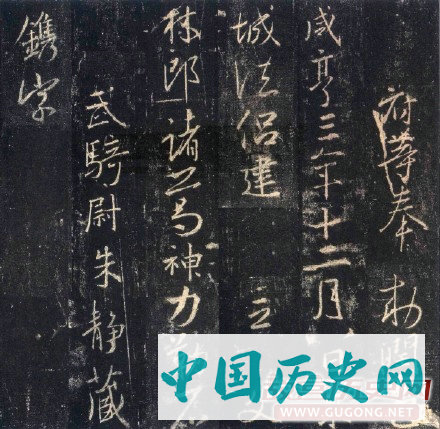 府等奉 敕
咸亨三年十二月
城法侣建 立
林郎諸葛神力
武騎尉朱静藏
鐫字
中国历史网
WWW.GUGONG.NET